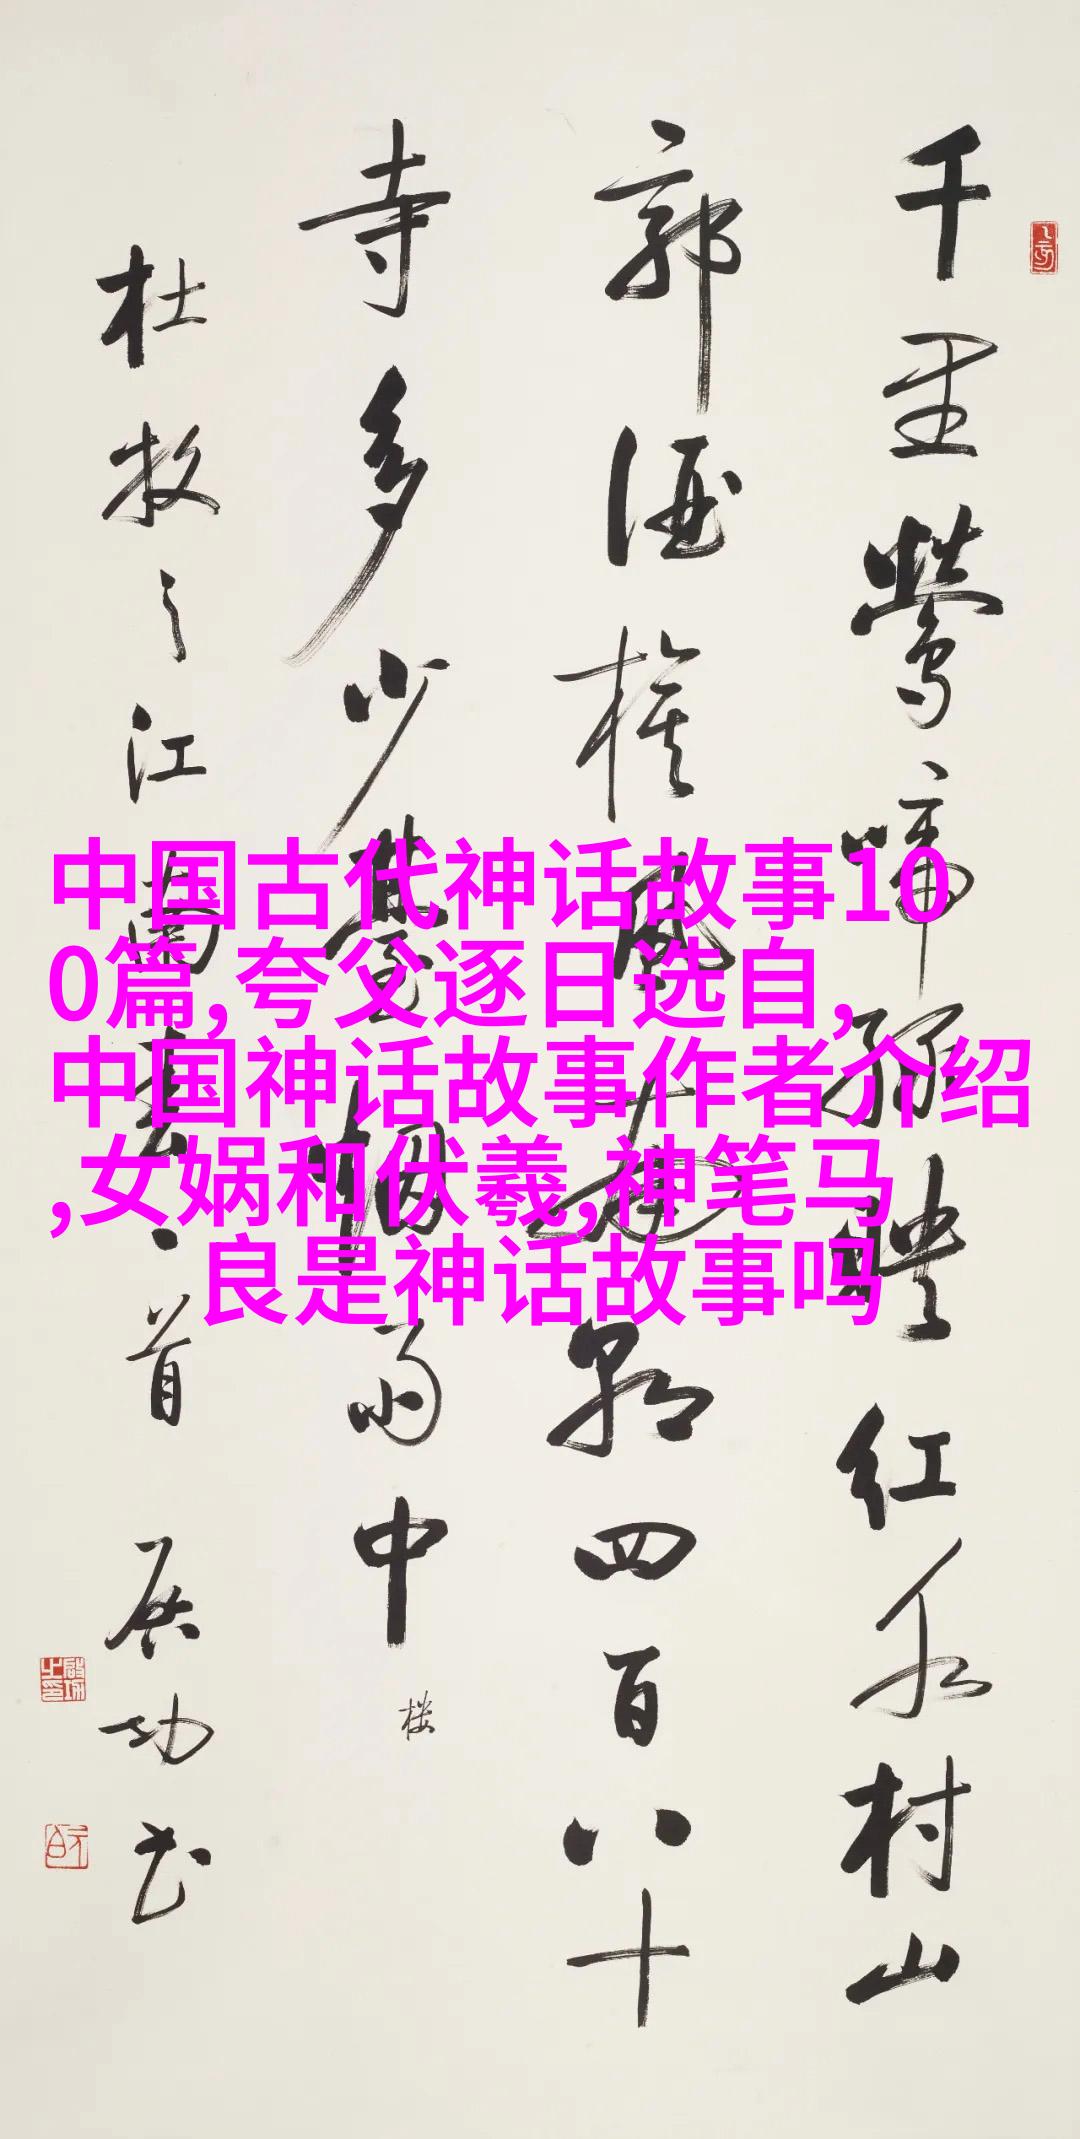 千里莺啼绿映红水村山
郭酒旗风南朝四百八十
寺多少台烟雨中
楼
杜牧之江南春一首 启功书
中国古代神话故事10
0篇,夸父逐日选自,
中国神话故事作者介绍
,女娲和伏羲,神笔马
良是神话故事吗